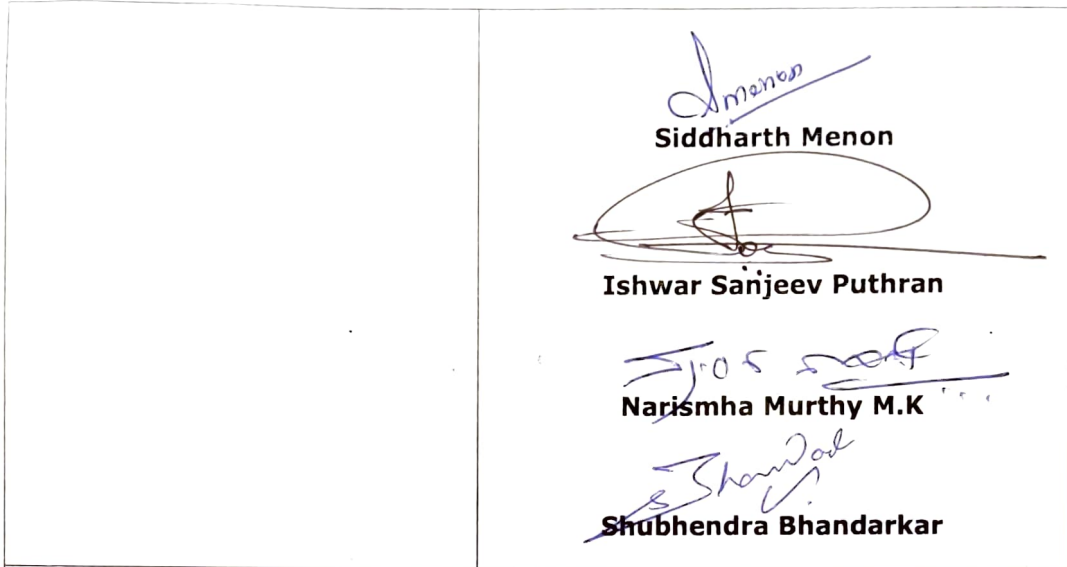 Smenon
Siddharth Menon
Ishwar Sanjeev Puthran
Narismha Murthy M.K
Shubhendra Bhandarkar